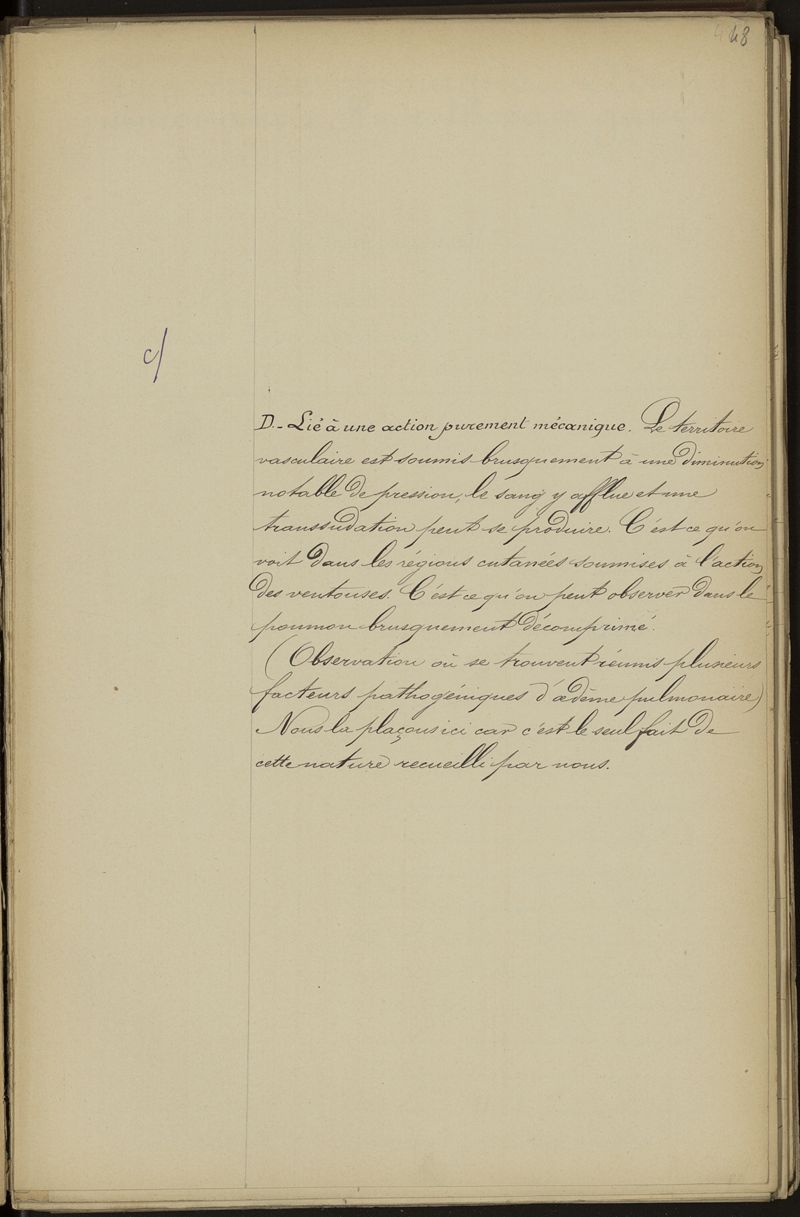 48
c/
D. - Lié à une action purement mécanique. Le territoire
vasculaire est soumis brusquement à une diminution
notable de pression, le sang y afflue et une
transsudation peut se produire. C'est ce qu'on
voit dans les régions cutanées soumises à l'action
des ventouses. C'est ce qu'on peut observer dans le
poumon brusquement décomprimé.
(Observation où se trouvent réunis plusieurs
facteurs pathogéniques d'œdème pulmonaire)
Nous la plaçons ici car c'est le seul fait de
cette nature recueilli par nous.